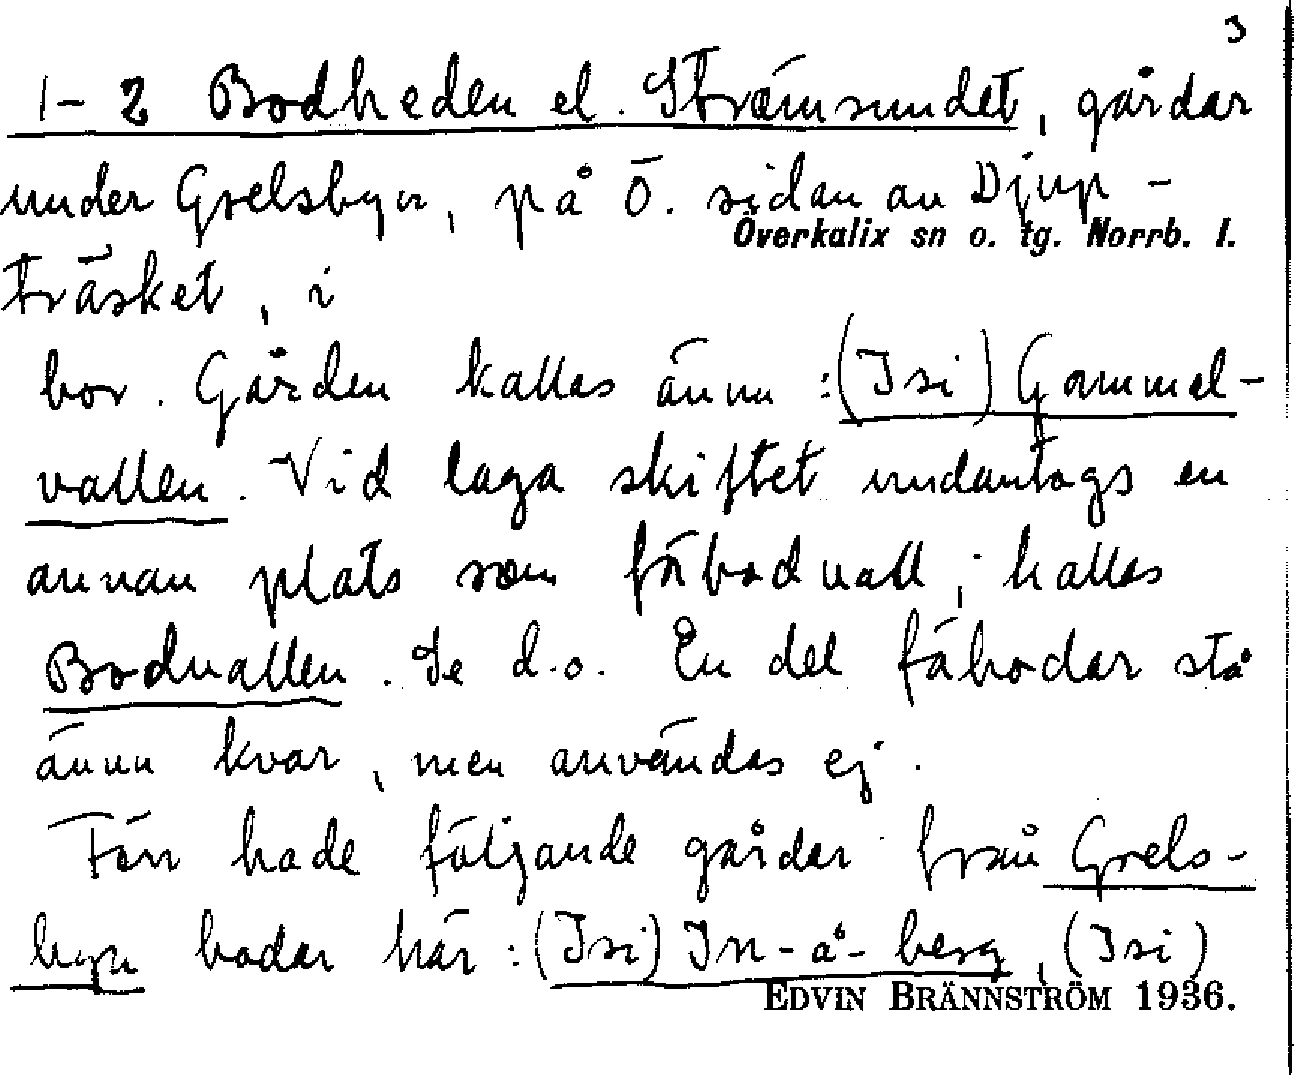 3
1-2 Bodheden el. Strömsundet, gårdar
under Grelsbyn, på Ö. sidan av Djup-
Överkalix sn o. tg. Norrb. l.
träsket, i
bor. Gården kallas ännu: (Isi) Gammel-
vallen. Vid laga skiftet undantogs en
annan plats som fäbodvall; kallas
Bodvallen. Se d.o. En del fäbodar stå
ännu kvar, men användas ej.
Förr hade följande gårdar från Grels-
byn bodar här: (Isi) In-å-berg, (Isi)
EDVIN BRÄNNSTRÖM 1936.